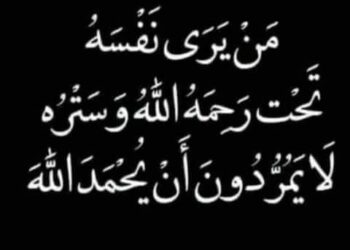 مَنْ يَرَى نَفْسَهُ
تَحْت رَحِمَهُ اللهُ وَسَتْرُه
لَا يَمُرُّدُونَ أَنْ يُحْمَدَ اللهَ